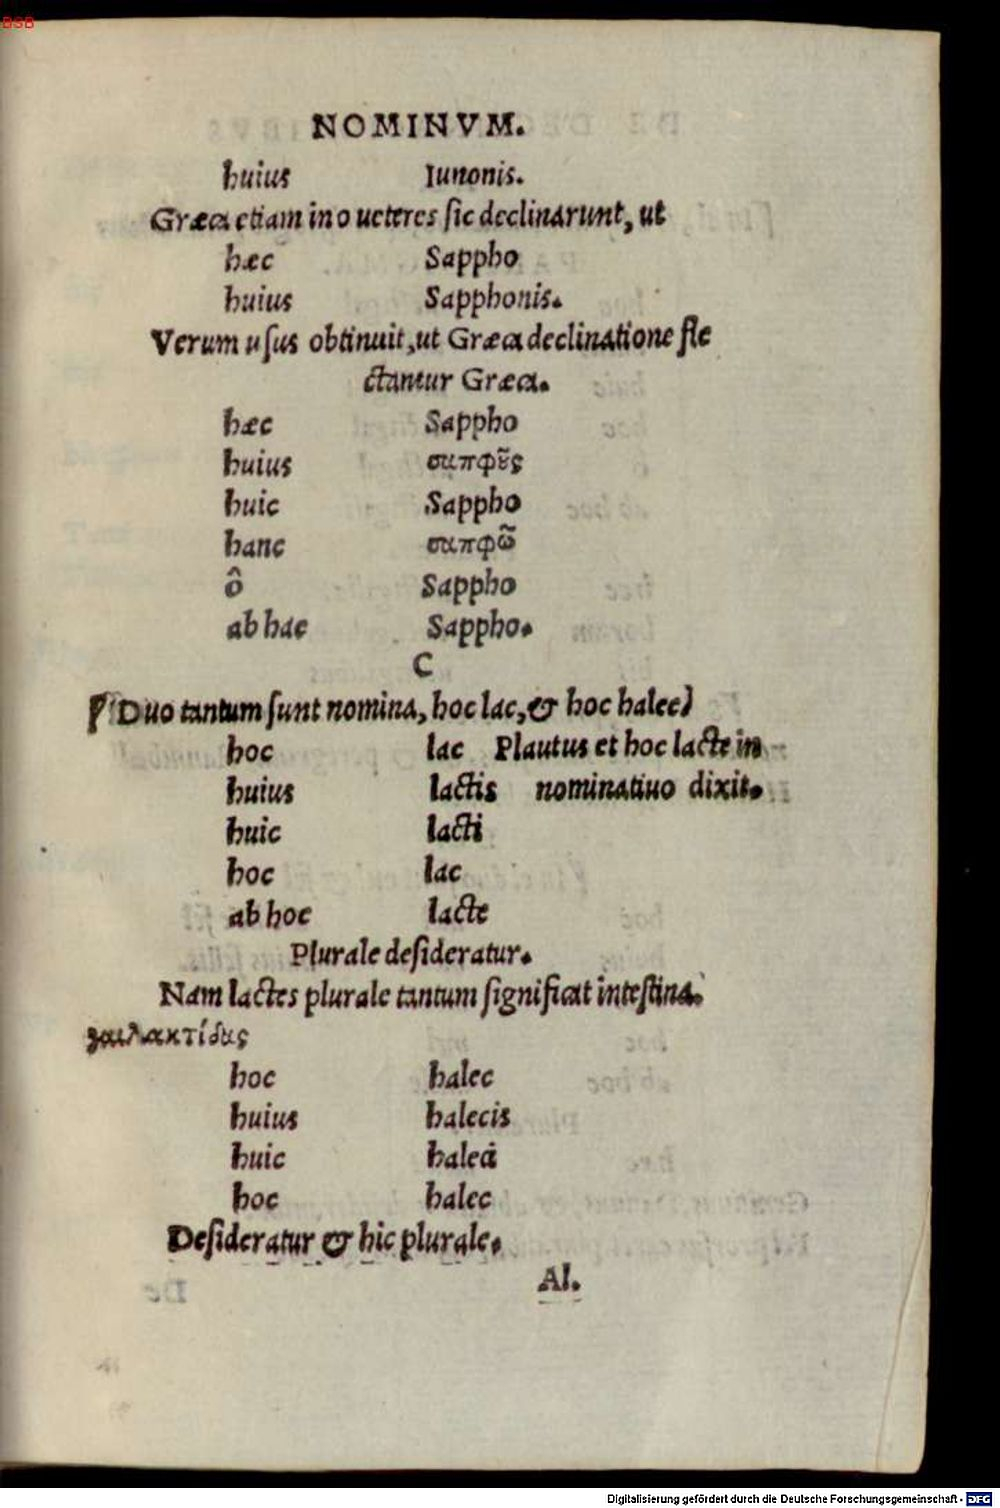 BSB
NOMINVM.
huius Iunonis.
Græca etiam in o ueteres sic declinarunt, ut
hæc Sappho
huius Sapphonis.
Verum usus obtinuit, ut Græca declinatione fle
ctantur Græca.
hæc Sappho
huius σαπφοῦς
huic Sappho
hanc σαπφῶ
ô Sappho
ab hac Sappho.
C
Duo tantum sunt nomina, hoc lac, & hoc halec)
hoc lac Plautus et hoc lacte in
huius lactis nominatiuo dixit.
huic lacti
hoc lac
ab hoc lacte
Plurale desideratur.
Nam lactes plurale tantum significat intestina.
γαλακτίδας
hoc halec
huius halecis
huic haleci
hoc halec
Desideratur & hic plurale.
Al.
Digitalisierung gefördert durch die Deutsche Forschungsgemeinschaft - DFG